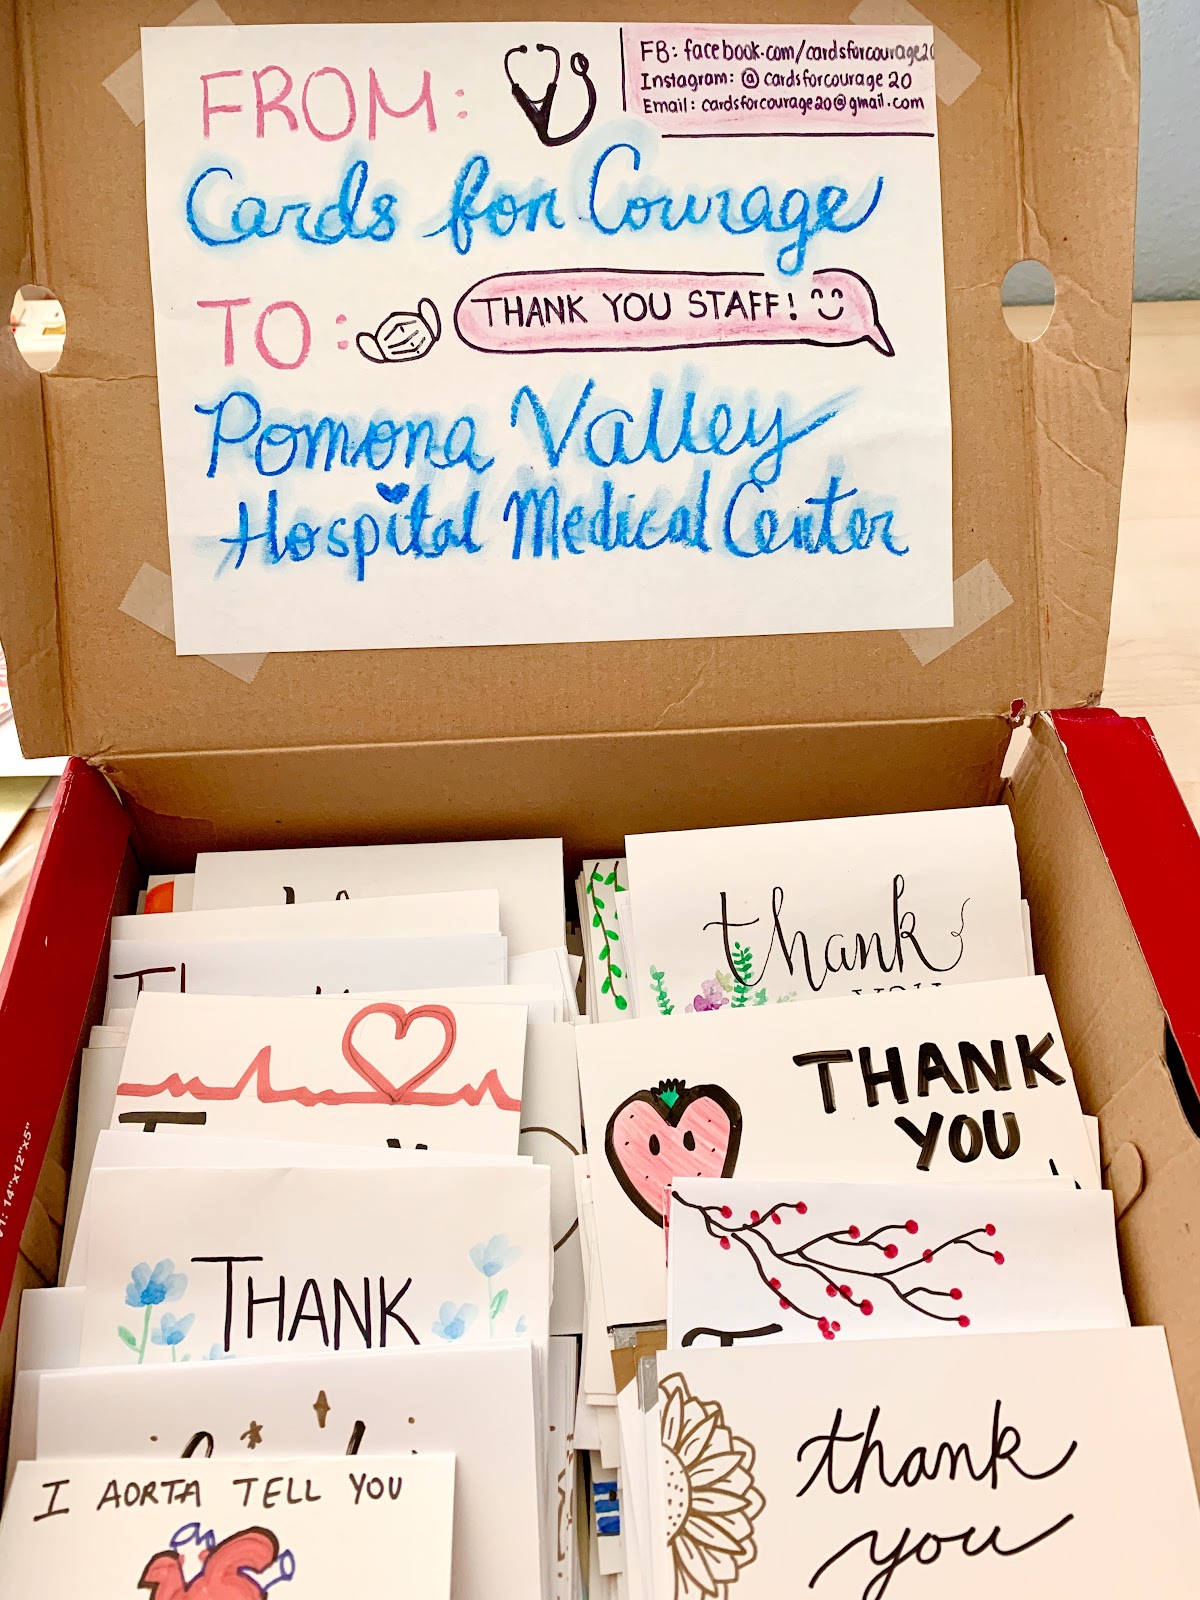 FROM:
FB: facebook.com/cardsforcourage20
Instagram: @cardsforcourage20
Email: cardsforcourage20@gmail.com
Cards for Courage
TO:
THANK YOU STAFF!
Pomona Valley
Hospital Medical Center
thank
YOU
THANK
YOU
THANK
14"x12"x5"
I AORTA TELL YOU
thank
you